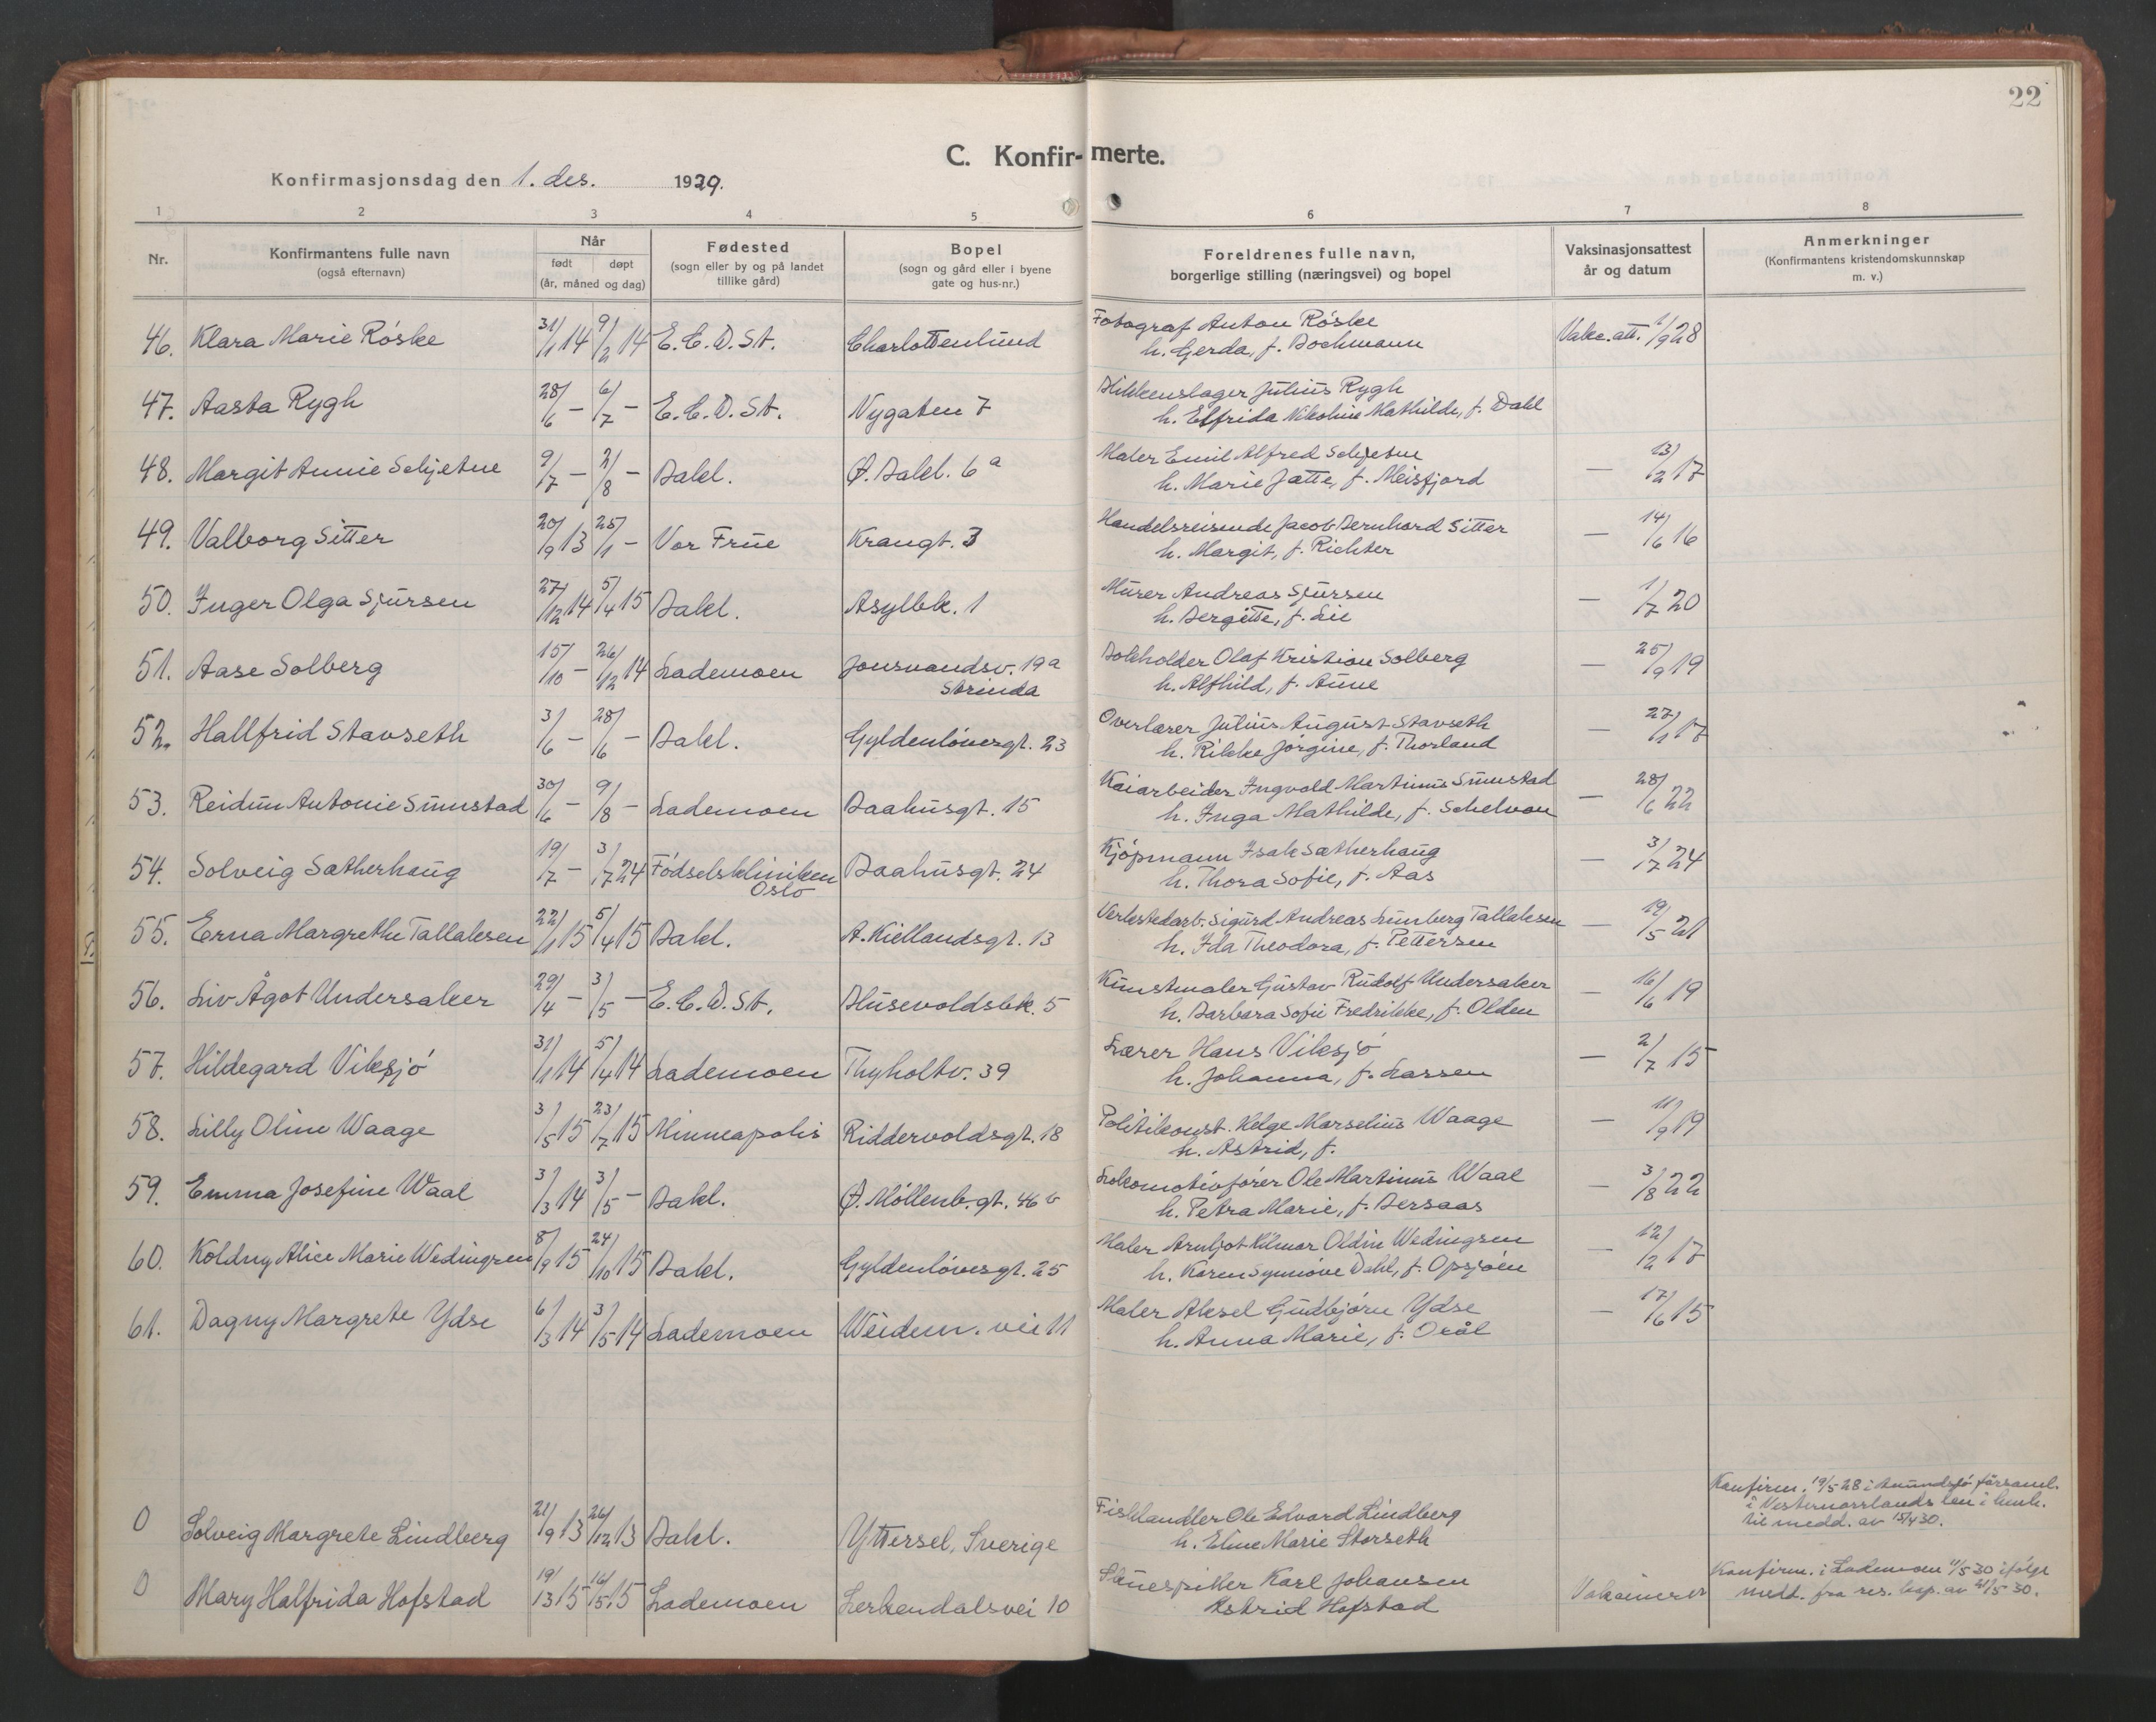 22
C. Konfir- merte.
Konfirmasjonsdag den 1. des. 1929.
1 2 3 4 5 6 7 8
Nr. Konfirmantens fulle navn (også efternavn) Når født døpt (år, måned og dag) Fødested (sogn eller by og på landet tillike gård) Bopel (sogn og gård eller i byene gate og hus-nr.) Foreldrenes fulle navn, borgerlige stilling (næringsvei) og bopel Vaksinasjonsattest år og datum Anmerkninger (Konfirmantens kristendomskunnskap m. v.)
46. Klara Marie Röske 31/1 14 9/2 14 E.C.D.St. Charlottenlund Fotograf Anton Röske Vakc. att. 1/9 28
h. Gerda, f. Bochmann
47. Aasta Rygh 28/6 – 6/7 – E.C.D.St. Nygaten 7 Blikkenslager Julius Rygh
h. Elfrida Nikoline Mathilde, f. Dahl
48. Margit Annie Schjetne 9/7 – 2/8 – Bakl. Ø. Bakl. 6a Maler Emil Alfred Schjetne – 13/2 17
h. Marie Jatte, f. Meisfjord
49. Valborg Sitter 20/9 13 25/1 – Vor Frue Krangt. 3 Handelsreisende Jacob Bernhard Sitter – 14/6 16
h. Margit, f. Richter
50. Inger Olga Sjursen 27/12 14 5/4 15 Bakl. Asylbk. 1 Murer Andreas Sjursen – 1/7 20
h. Bergitte, f. Lie
51. Aase Solberg 15/10 – 26/12 14 Lademoen Jonsvandsv. 19a Bokholder Olaf Kristian Solberg – 25/9 19
Strinda h. Alfhild, f. Aune
52. Hallfrid Stavseth 3/6 – 28/6 – Bakl. Gyldenlövesgt. 23 Overlærer Julius August Stavseth – 27/1 17
h. Rikke Jörgine, f. Thorland
53. Reidun Antonie Sunstad 30/6 – 9/8 – Lademoen Baahusgt. 15 Kaiarbeider Ingvald Martinus Sunstad – 28/6 22
h. Inga Mathilde, f. Schelvan
54. Solveig Sætherhaug 19/7 – 3/7 24 Födselskliniken Baahusgt. 24 Kjöpmann Isak Sætherhaug – 3/7 24
Oslo h. Thora Sofie, f. Aas
55. Erna Margrethe Tallaksen 22/1 15 5/4 15 Bakl. A. Kiellandsgt. 13 Verkstedarb. Sigurd Andreas Lunberg Tallaksen – 19/5 21
h. Ida Theodora, f. Pettersen
56. Liv Ågot Undersaker 29/4 – 3/5 – E.C.D.St. Blusevoldsbk. 5 Kunstmaler Gustav Rudolf Undersaker – 16/6 19
h. Barbara Sofie Fredrikke, f. Olden
57. Hildegard Viksjö 31/1 14 5/4 14 Lademoen Thyholtv. 39 Lærer Hans Viksjö – 2/7 15
h. Johanna, f. Larsen
58. Lilly Oline Waage 3/5 15 23/7 15 Minneapolis Riddervoldsgt. 18 Politikonst. Helge Marselius Waage – 11/9 19
h. Astrid, f.
59. Emma Josefine Waal 3/3 14 3/5 – Bakl. Ø. Möllenb.gt. 46b Lokomotivförer Ole Martinus Waal – 3/8 22
h. Petra Marie, f. Bersaas
60. Koldny Alice Marie Wedingsen 8/9 15 24/10 15 Bakl. Gyldenlövesgt. 25 Maler Arnljot Hilmar Oldin Wedingsen – 12/2 17
h. Karen Synnöve Dahl, f. Opsjöen
61. Dagny Margrete Ydse 6/3 14 3/5 14 Lademoen Weidem. vei 11 Maler Aksel Gudbjörn Ydse – 17/6 15
h. Anna Marie, f. Orål
Konfirm. 19/5 28 i Anundsjö församl.
i Vesternorrlands len i henh.
til medd. av 15/4 30.
0 Solveig Margrete Lindberg 21/9 13 26/12 13 Bakl. Yttersel, Sverige Fiskhandler Ole Edvard Lindberg
h. Eline Marie Storseth
0 Mary Halfrida Hofstad 19/3 15 16/5 15 Lademoen Lerkendalsvei 10 Karl Johansen Vaksinert Konfirm. i Lademoen 11/5 30 ifölge
Astrid Hofstad medd. fra res. kap. av 21/5 30.